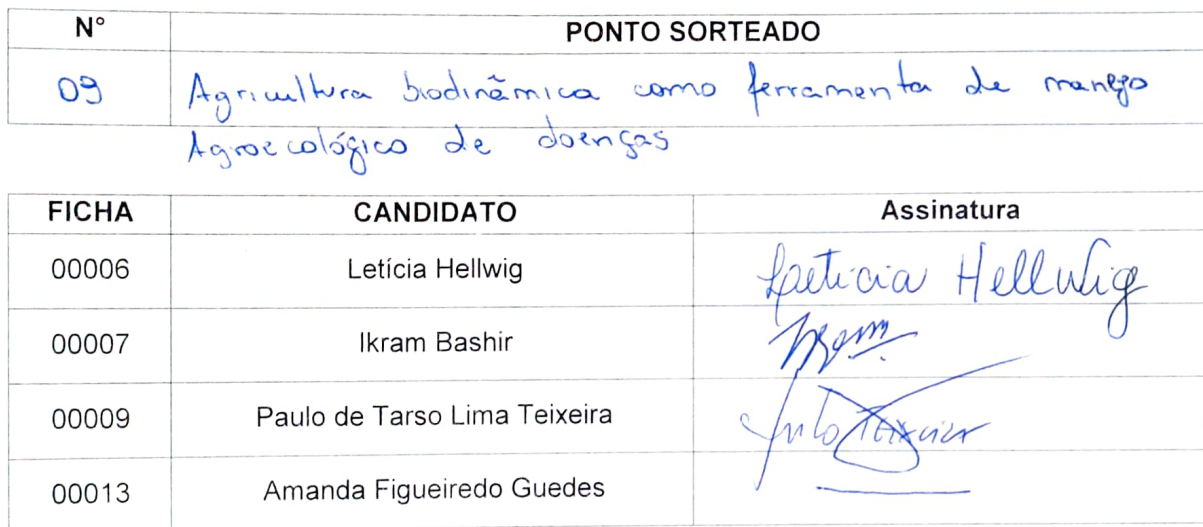 N° PONTO SORTEADO
09 Agricultura biodinâmica como ferramenta de manejo
Agroecológico de doenças
FICHA CANDIDATO Assinatura
00006 Letícia Hellwig Letícia Hellwig
00007 Ikram Bashir
00009 Paulo de Tarso Lima Teixeira Teixeira
00013 Amanda Figueiredo Guedes